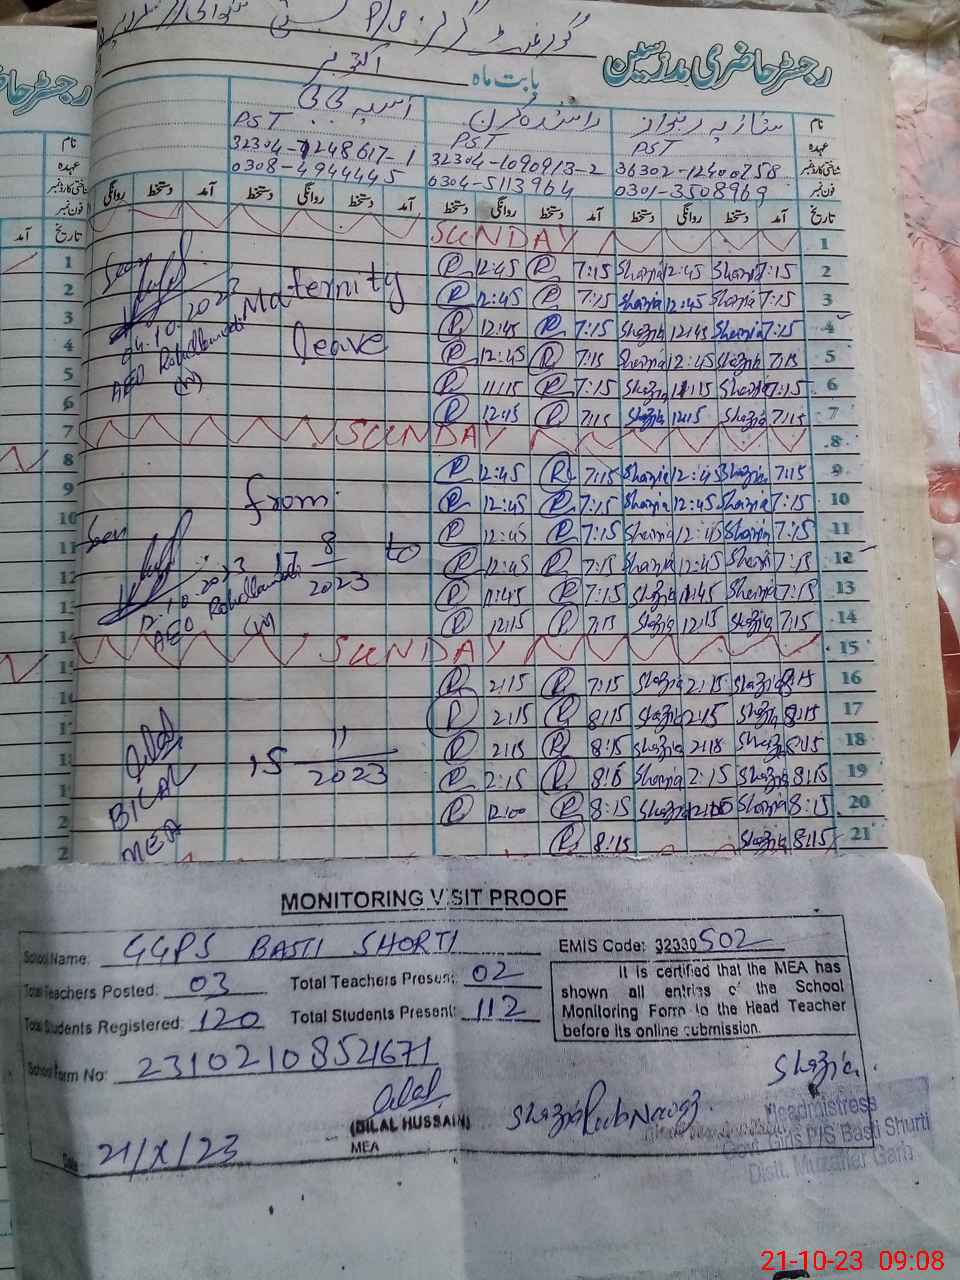 گورنمنٹ گرلز P/S بستی
رجسٹر حاضری مدرسین
بابت ماہ
اکتوبر
نام
آسیہ بی بی
عہدہ
PST
PST
PST
شناختی کارڈ نمبر
36302-12400758
32304-1090913-2
32304-7248617-1
فون نمبر
0301-3508969
0304-5113964
0308-4944445
تاریخ آمد دستخط روانگی دستخط آمد دستخط روانگی دستخط آمد دستخط روانگی دستخط
1 SUNDAY
2 7:15 Shazia 12:45 Shazia 7:15 12:45
3 7:15 Shazia 12:45 Shazia 7:15 12:45
4 7:15 Shazia 12:45 Shazia 7:15 12:45
5 7:15 Shazia 12:45 Shazia 7:15 12:45
6 7:15 Shazia 11:15 Shazia 7:15 11:15
7 7:15 Shazia 12:15 Shazia 7:15 12:45
8 SUNDAY
9 7:15 Shazia 12:45 Shazia 7:15 12:45
10 7:15 Shazia 12:45 Shazia 7:15 12:45
11 7:15 Shazia 12:45 Shazia 7:15 12:45
12 7:15 Shazia 12:45 Shazia 7:15 12:45
13 7:15 Shazia 11:45 Shazia 7:15 11:45
14 7:15 Shazia 12:15 Shazia 7:15 12:15
15 SUNDAY
16 8:15 Shazia 2:15 Shazia 7:15 2:15
17 8:15 Shazia 2:15 Shazia 8:15 2:15
18 8:15 Shazia 2:15 Shazia 8:15 2:15
19 8:15 Shazia 2:15 Shazia 8:15 2:15
20 8:15 Shazia 12:00 Shazia 8:15 12:00
21 8:15 Shazia 8:15
Maternity
leave
from
17 8/2023 to
15 11/2023
Seen
04.10.2023
AEO
(W)
Seen
12.10.2023
AEO
Bilal
BILAL
MEA
MONITORING VISIT PROOF
School Name: GGPS BASTI SHORTI
EMIS Code: 32330502
Total Teachers Posted: 03
Total Teachers Present: 02
Total Students Registered: 120
Total Students Present: 112
School Form No: 23102108521671
It is certified that the MEA has
shown all entries of the School
Monitoring Form to the Head Teacher
before its online submission.
(BILAL HUSSAIN)
MEA
Shazia Rub Nawaz
Shazia
Date: 21/X/23
Headmistress
Govt. Girls P/S Basti Shurti
Distt. Muzaffar Garh
21-10-23 09:08